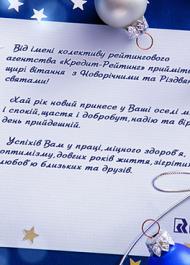 Від імені колективу рейтингового
агентства «Кредит-Рейтинг» прийміть
щирі вітання з Новорічними та Різдвя
святами!
Хай рік новий принесе у Ваші оселі м
і спокій, щастя і добробут, надію та вір
день прийдешній.
Успіхів Вам у праці, міцного здоров'я,
оптимізму, довгих років життя, зігріти
любов'ю близьких та друзів.